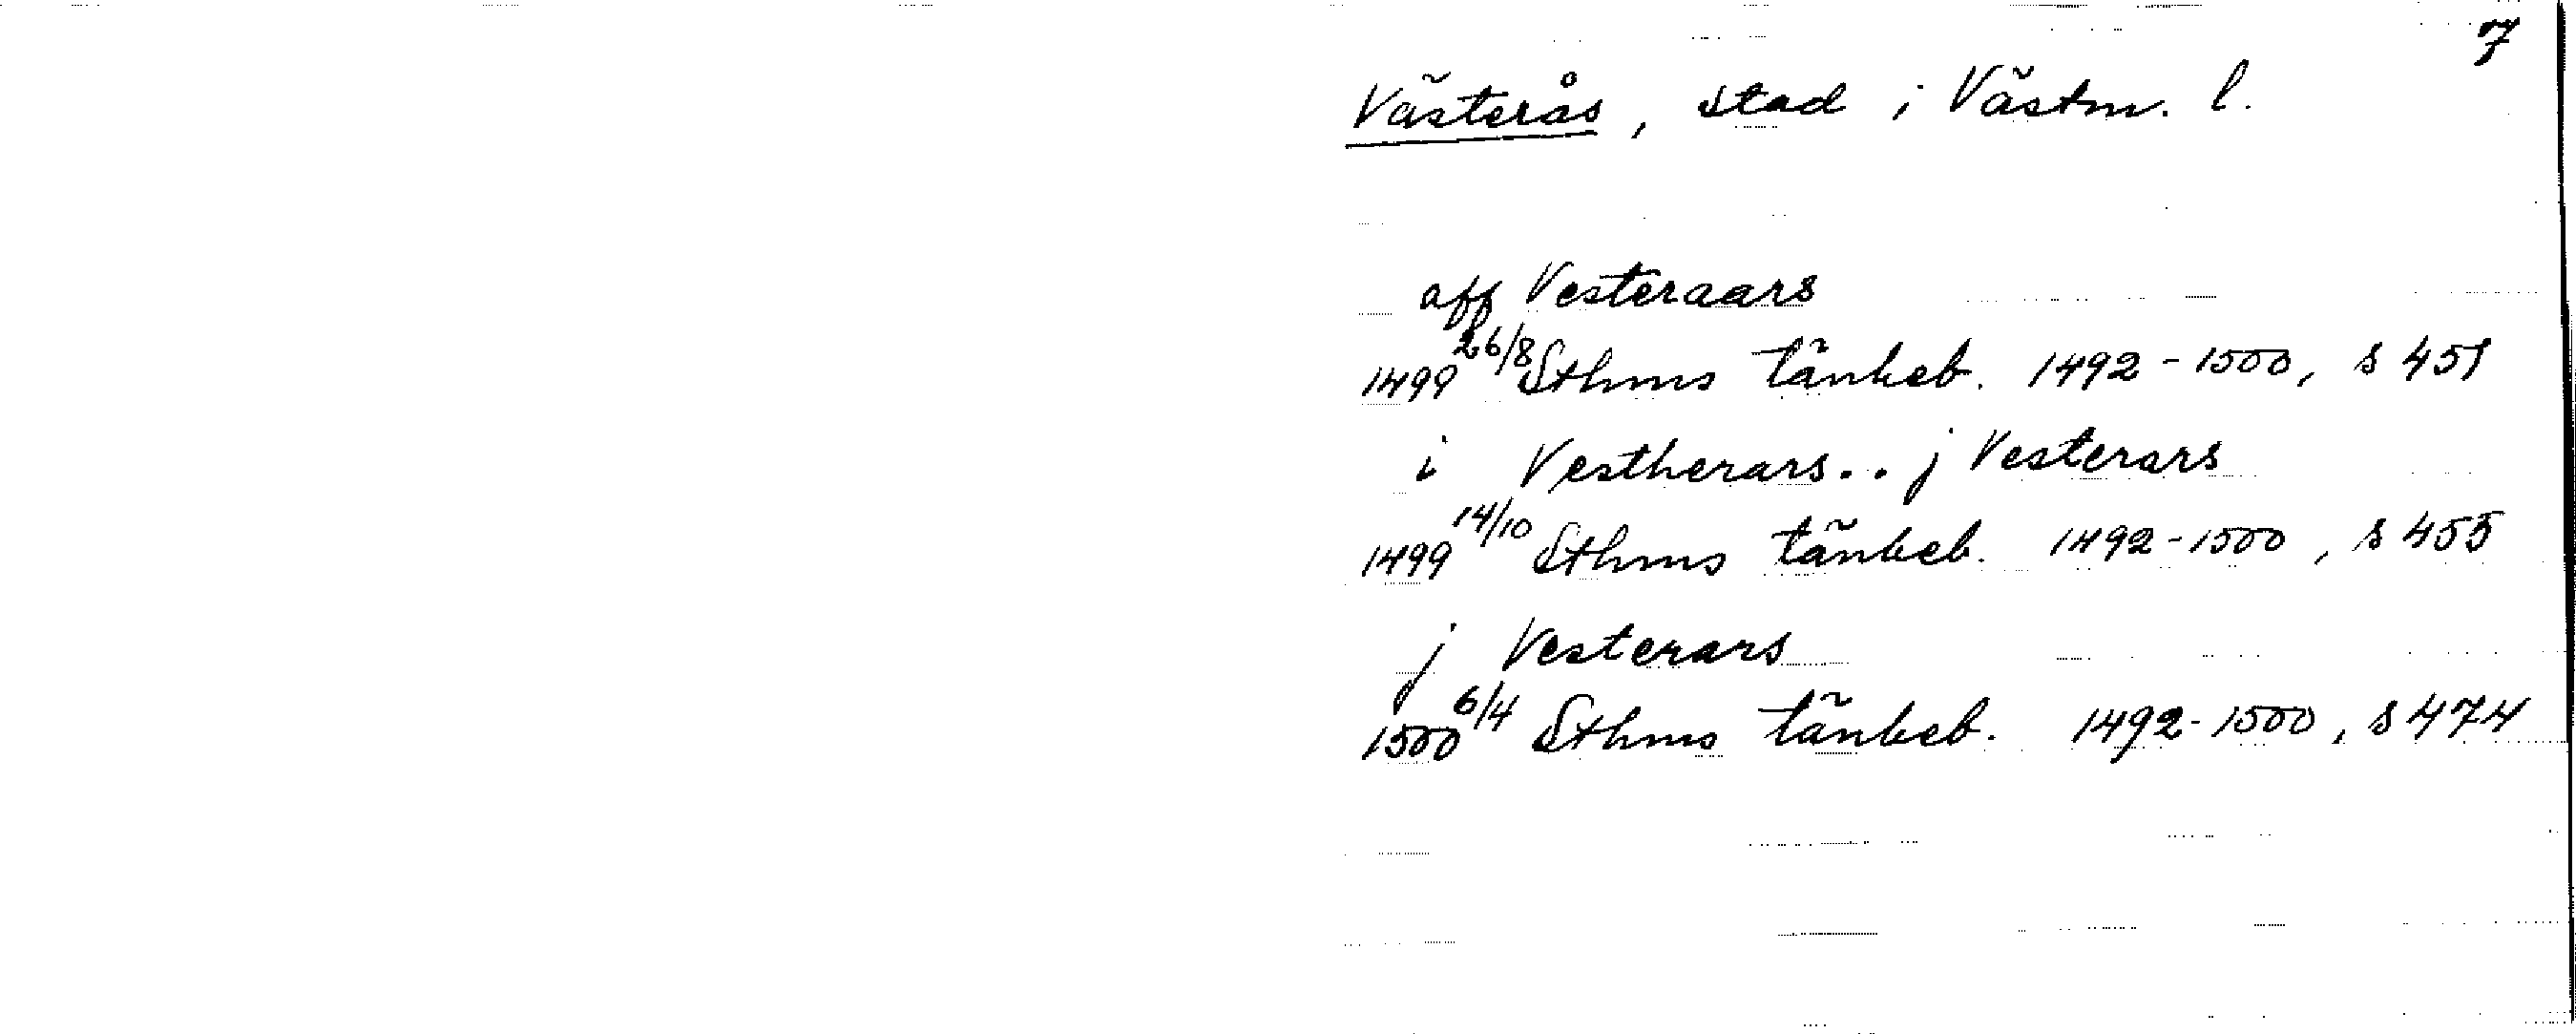 7
Västerås, stad i Västm. l.
aff Vesteraars
1499 26/8 Sthms tänkeb. 1492-1500, s 451
i Vestherars.. j Vesterars
1499 14/10 Sthms tänkeb. 1492-1500, s 455
j Vesterars
1500 6/4 Sthms tänkeb. 1492-1500, s 474